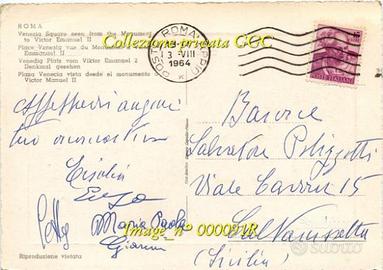 ROMA
Venezia Square seen from the Monument
to Victor Emanuel II
Place Venezia vue du Monument
Emmanuel II
Venedig Platz vom Viktor Emanuel 2
Denkmal gesehen
Plaza Venecia vista desde el monumento
Victor Manuel II
Collezione privata CGC
ROMA
POSTE
3 VIII
1964
Affettuosi auguri
tuo onomastico
Luisa
Maria Paola
Gianni
Barone
Salvatore Polizzotti
Viale Cavour 15
Caltanissetta
(Sicilia)
Image n° 00009IR
Riproduzione vietata
subito